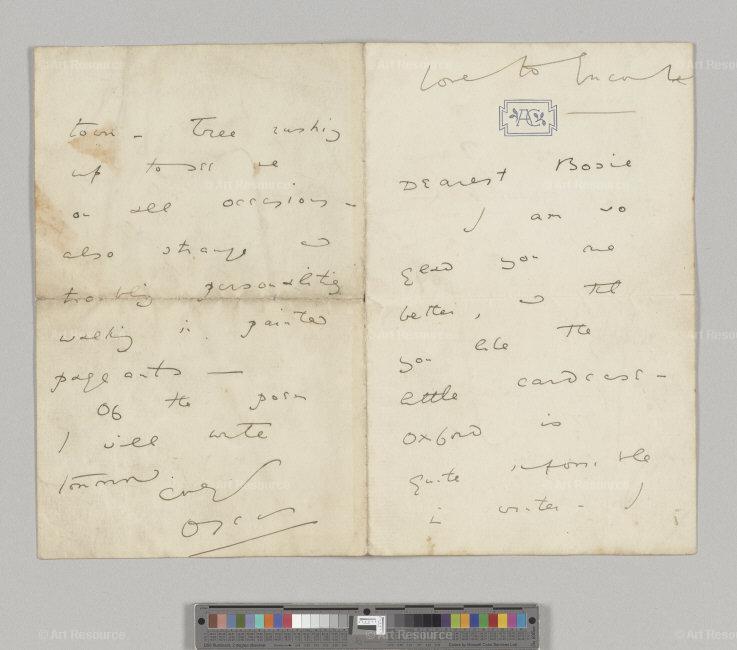 Love to Encombe
AC
Dearest Bosie
I am so
glad you are
better, and that
you like the
little card case –
Oxford is
quite impossible
in winter. I
town – Tree rushing
up to see me
on all occasions –
also strange and
troubling personalities
walking in painted
pageants —
Of the poem
I will write
tomorrow. Ever
Oscar
© Art Resource